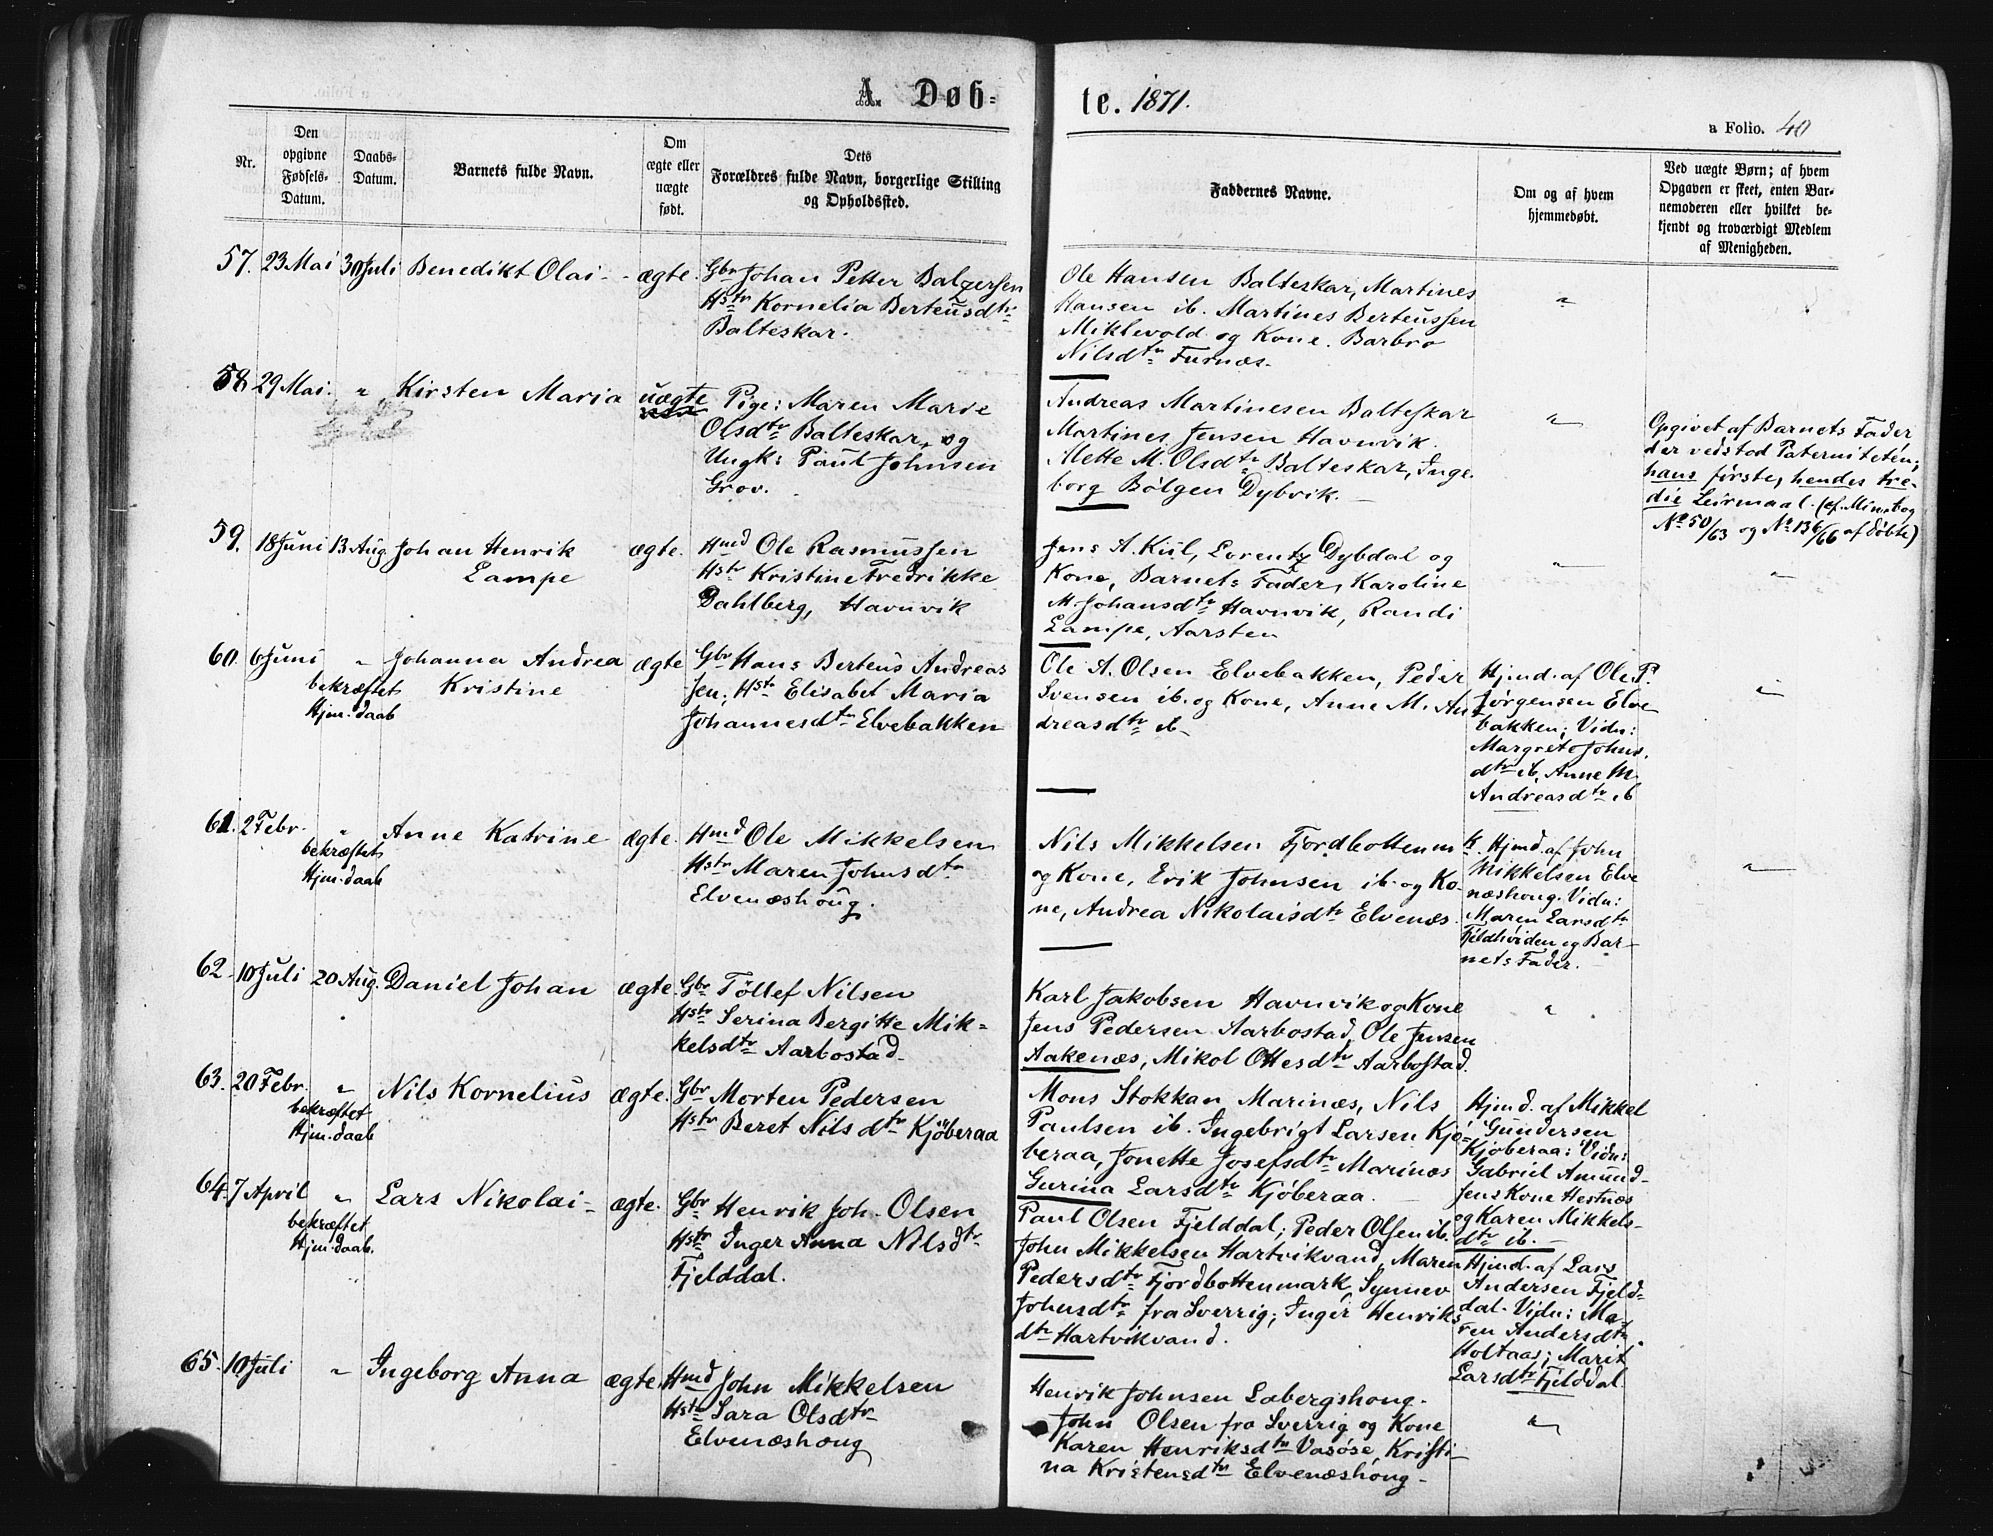 A. Døb=
te. 1871.
a Folio. 40
Nr.
Den opgivne Fødsels-Datum.
Daabs-Datum.
Barnets fulde Navn.
Om ægte eller uægte født.
Dets Forældres fulde Navn, borgerlige Stilling og Opholdssted.
Faddernes Navne.
Om og af hvem hjemmedøbt.
Ved uægte Børn; af hvem Opgaven er skeet, enten Barnemoderen eller hvilket bekjendt og troværdigt Medlem af Menigheden.
57. 23 Mai 30 Juli Benedikt Olai - ægte. Gbr Johan Petter Balzersen
Hstr Kornelia Berteusdtr
Balteskar.
Ole Hansen Balteskar, Martines
Hansen ib. Martines Berteussen
Miklevold og Kone. Barbro
Nilsdtr Furnæs.
"
58. 29 Mai. " Kirsten Maria uægte Pige: Maren Marie
Olsdtr Balteskar, og
Ungk: Paul Johnsen
Grov.
Andreas Martinesen Balteskar
Martines Jensen Havnvik.
Mette M. Olsdtr Balteskar, Inge
borg Bølgen Dybvik. -
"
Opgivet af Barnets Fader
der vedstod Paterniteten;
hans første, hendes tre-
die Leirmaal. (cf. Min.bog
No 50/63 og No 136/66 af døbte)
59. 18 Juni 13 Aug. Johan Henrik
Lampe
ægte. Hmd Ole Rasmussen
Hstr Kristine Fredrikke
Dahlberg, Havnvik
Jens A. Kiil, Lorentz Dybdal og
Kone, Barnets Fader, Karoline
M. Johansdtr Havnvik, Randi
Lampe, Aarsten
"
"
60. 6 Juni " Johanna Andrea
bekræftet Kristine
Hjm. daab
ægte Gbr Hans Berteus Andreas
sen; Hstr Elisabet Maria
Johannesdtr Elvebakken
Ole A. Olsen Elvebakken, Peder
Svensen ib. og Kone, Anne M. An
dreasdtr ib -
Hjmd. af Ole P.
Jørgensen Elve
bakken; Vidn:
Margrete Johns
dtr ib, Anne M.
Andreasdtr ib
"
61. 2 Febr. " Anne Katrine
bekræftet
Hjm. daab
ægte. Hmd Ole Mikkelsen
Hstr Maren Johnsdtr
Elvenæshoug.
Nils Mikkelsen Fjordbottenm
og Kone, Erik Johnsen ib. og Ko-
ne, Andrea Nikolaisdtr Elvenæs.
k. Hjmd. af John
Mikkelsen Elve
næshoug. Vidn:
Maren Larsdtr
Fjeldhviden og Bar-
nets Fader. -
"
62. 10 Juli 20 Aug. Daniel Johan ægte. Gbr Tollef Nilsen
Hstr Serina Bergitte Mik=
kelsdtr Aarbostad -
Karl Jakobsen Havnvik og Kone
Jens Pedersen Aarbostad, Ole Jensen
Aakenæs, Mikol Ottesdtr Aarbostad.
"
63. 20 Febr. " Nils Kornelius
bekræftet
Hjm. daab
ægte. Gbr Morten Pedersen
Hstr Beret Nilsdtr Kjøberaa
Mons Stokkan Marinæs, Nils
Paulsen ib. Ingebrigt Larsen Kjø=
beraa, Jonette Josefsdtr Marinæs
Gurina Larsdtr Kjøberaa. -
Hjmd. af Mikkel
Gundersen
Kjøberaa; Vidn:
Gabriel Amund-
sens Kone Hestnæs
og Karen Mikkels-
dtr ib. -
64. 7 April " Lars Nikolai -
bekræftet
Hjm. daab.
ægte. Gbr Henrik Joh. Olsen
Hstr Inger Anna Nilsdtr
Fjelddal.
Paul Olsen Fjelddal; Peder Olsen ib.
John Mikkelsen Hartvikvand, Maren
Pedersdtr Fjordbottenmark, Synnev
Johnsdtr fra Sverrig; Inger Henriks
dtr Hartvikvand.
Hjmd. af Lars
Andersen Fjeld=
dal. Vidn: Ma-
ren Andersdtr
Holtaas; Marit
Larsdtr Fjelddal.
65. 10 Juli " Ingeborg Anna ægte. Hmd John Mikkelsen
Hstr Sara Olsdtr
Elvenæshoug
Henrik Johnsen Labergshoug.
John Olsen fra Sverrig og Kone
Karen Henriksdtr Vasøse, Kristi-
na Kristensdtr Elvenæshoug -
"